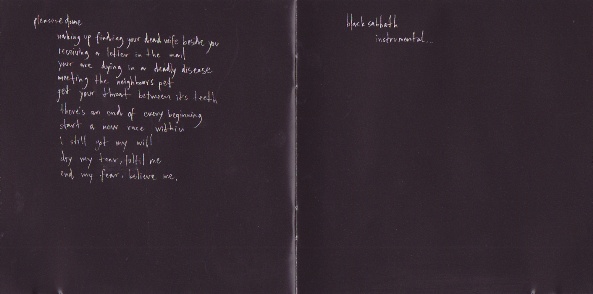 pleasuredome
waking up finding your dead wife beside you
receiving a letter in the mail
your are dying in a deadly disease
meeting the neighbours pet
get your throat between it's teeth
there's an ends of every beginning
start a new race within
i still got my will
dry my tear, fulfil me
end my fear, believe me.
black sabbath
instrumental...